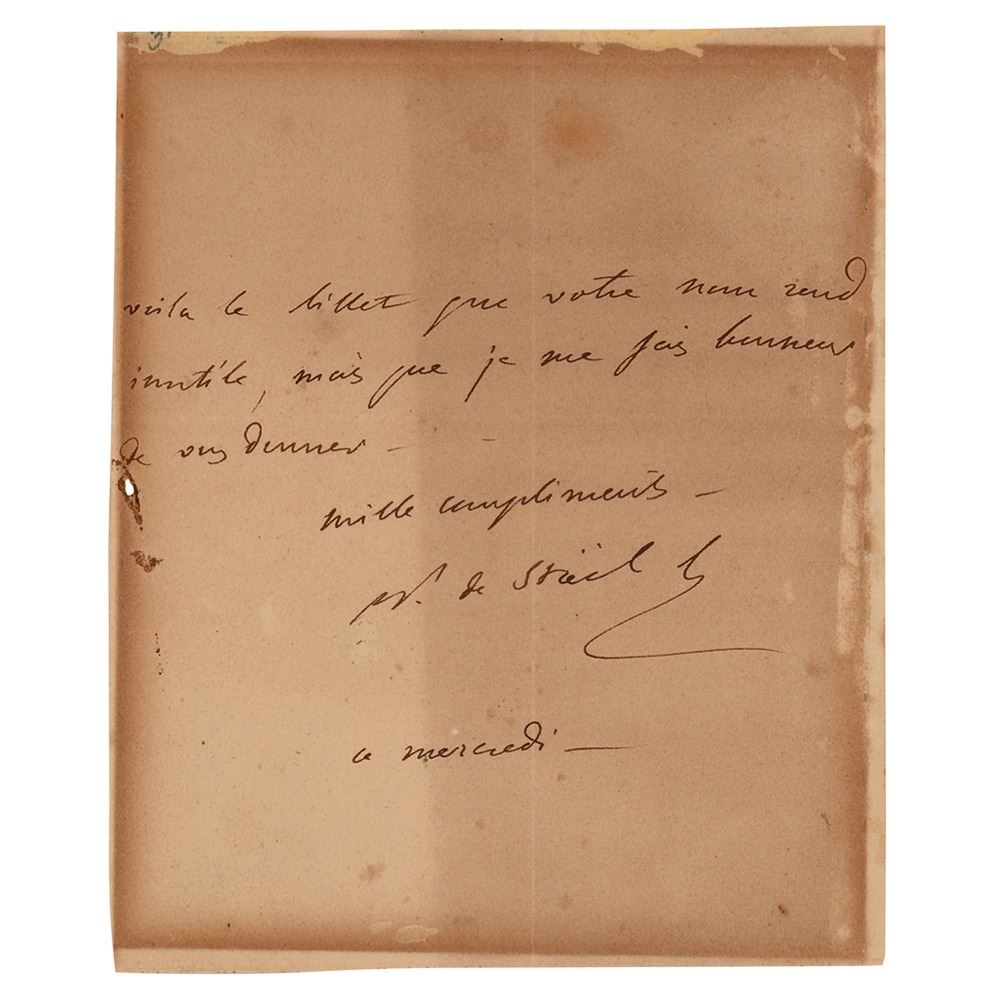 voila le billet que votre nom rend
inutile, mais que je me fais honneur
de vous donner —
mille compliments —
N. de Stäel h
ce mercredi —